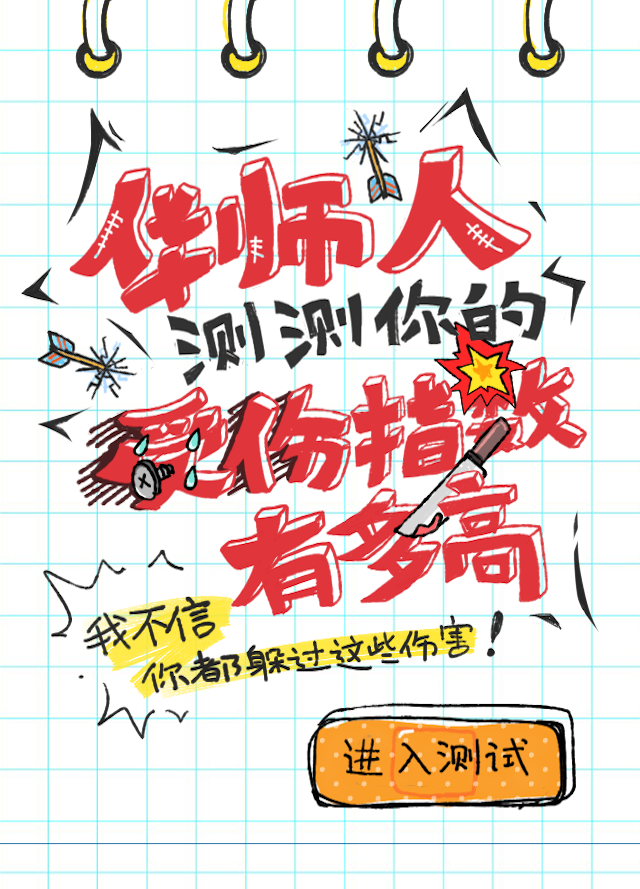 华师人
测测你的
受伤指数
有多高
我不信
你都躲过这些伤害！
进入测试